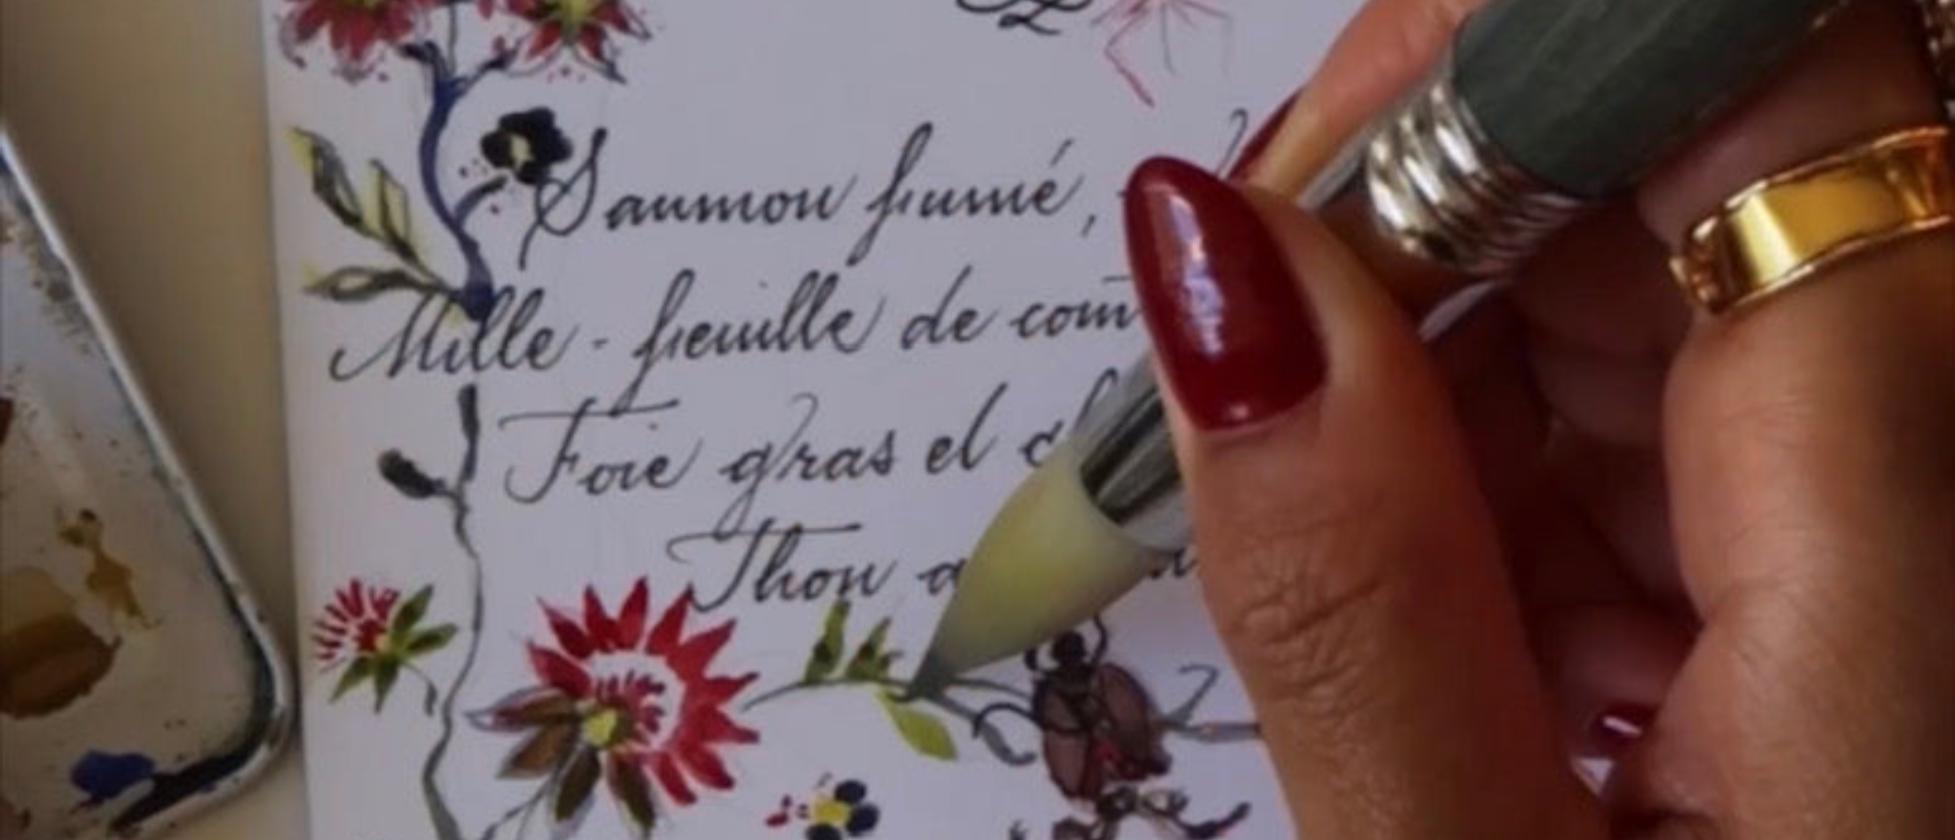 Saumon fumé,
Mille-feuille de
Foie gras et
Thon